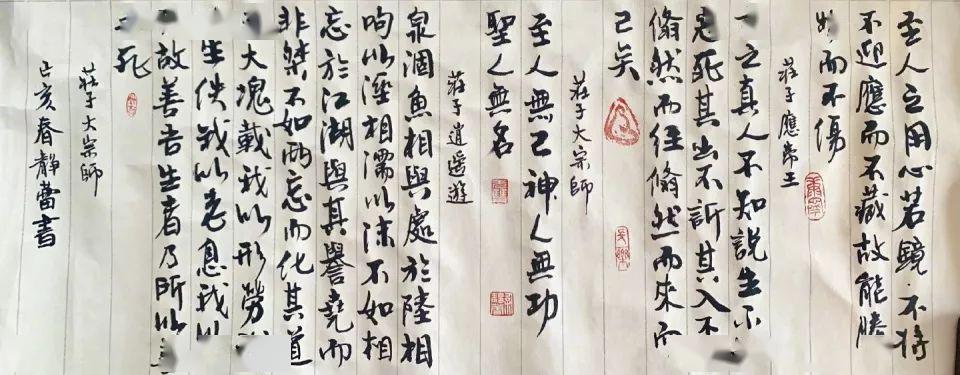 至人之用心若鏡不將
不迎應而不藏故能勝
而不傷
莊子應帝王
之真人不知說生不
死其出不訢其入不
翛然而往翛然而來而
已矣
莊子大宗師
至人無己神人無功
聖人無名
莊子逍遙遊
泉涸魚相與處於陸相
呴以溼相濡以沫不如相
忘於江湖與其譽堯而
非桀不如兩忘而化其道
大塊載我以形勞
生佚我以老息我以
故善吾生者乃所以
死
莊子大宗師
己亥春靜書